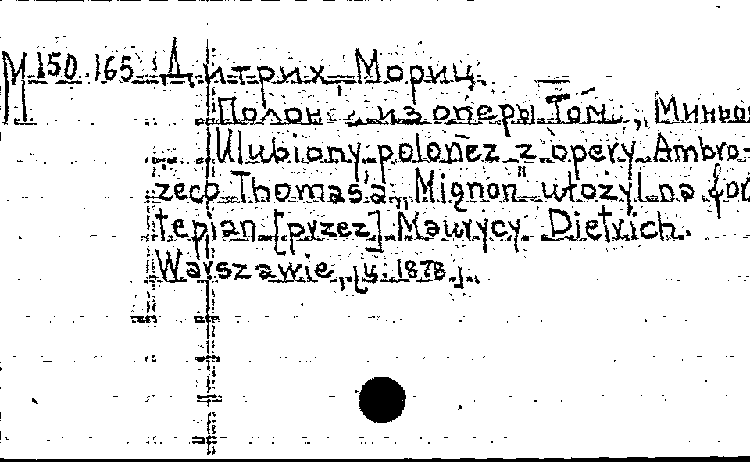 М 150.165 Дитрих, Мориц.
Полон. из оперы Том.,
Ulubiony polonez z opery Ambro-
żego Thomas'a „Mignon" ułożył na for
tepian [przez] Maurycy Dietrich.
Warszawie,